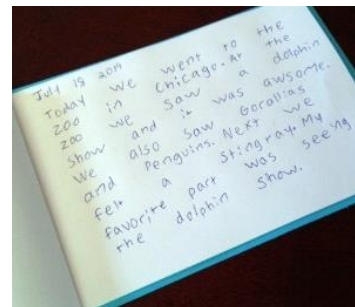 July 18 2014
Today we went to the
zoo in Chicago. At the
zoo we saw a dolphin
show and it was awsome.
We also saw Gorallias
and Penguins. Next we
felt a Stingray. My
favorite part was seeing
the dolphin show.